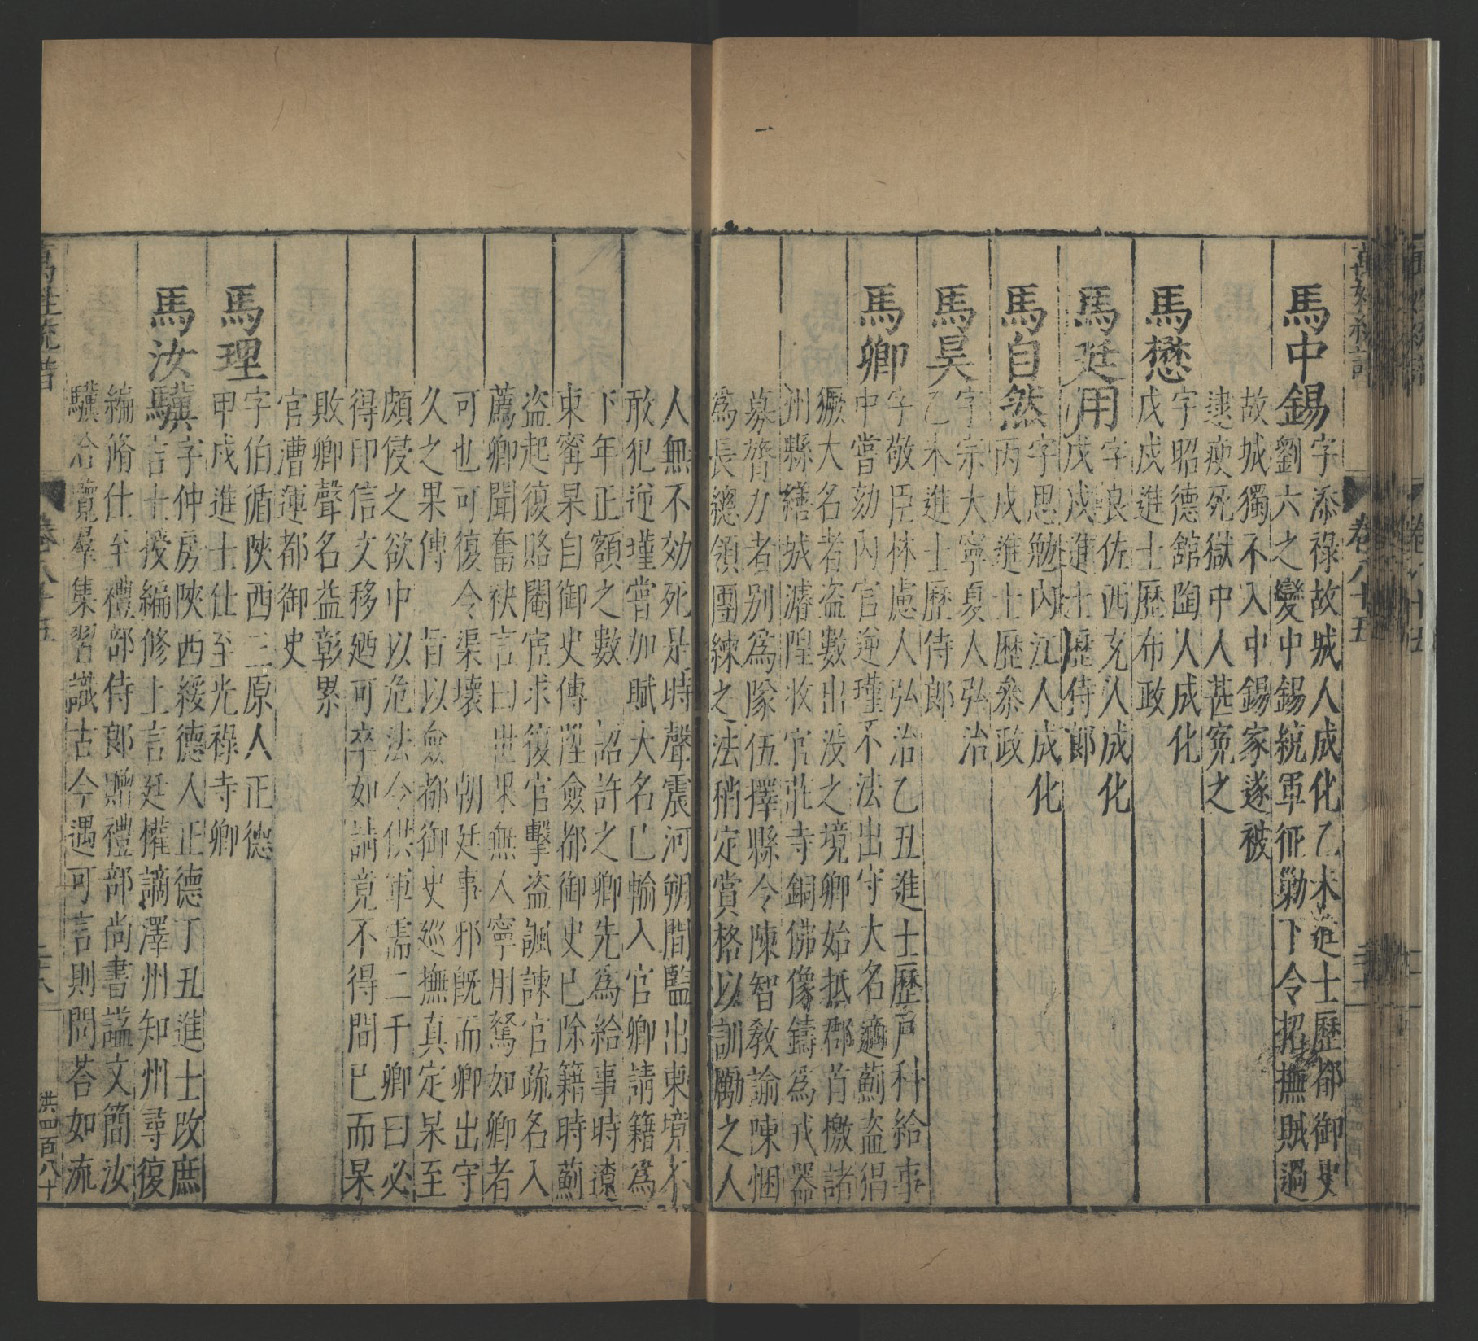 萬姓統譜
卷八十五
馬中錫字添祿故城人成化乙未進士歷都御史
劉六之變中錫統軍征勦下令招撫賊過
故城獨不入中錫家遂被
逮瘐死獄中人甚冤之
馬懋字昭德舘陶人成化
戊戌進士歷布政
馬廷用字良佐西充人成化
戊戌進士歷侍郎
馬自然字思勉内江人成化
丙戌進士歷叅政
馬昊字宗大寧夏人弘治
乙未進士歷侍郎
馬卿字敬臣林慮人弘治乙丑進士歷戸科給事
中嘗劾内官逆瑾不法出守大名適薊盗倡
獗大名者盗數出没之境卿始抵郡首檄諸
州縣繕城濬隍收官莊寺銅佛像鑄為戎器
募膂力者别為隊伍擇縣令陳智敎諭陳悃
為長總領團練之法稍定賞格以訓勵之人
人無不効死是時聲震河朔間監出東境不
敢犯逆瑾嘗加賦大名已輸入官卿請籍為
下年正額之數 詔許之卿先為給事時遼
東寗杲自御史傳陞僉都御史已除籍時薊
盗起復賂閹宦求復官擊盗諷諫官疏名入
薦卿聞奮袂言曰世果無人寧用駑如卿者
可也可復令渠壞 朝廷事邪旣而卿出守
久之果傳 旨以僉都御史巡撫真定杲至
頗侵之欲中以危法令供軍需二千卿曰必
得印信文移廼可卒如請竟不得間已而杲
敗卿聲名益彰累
官漕運都御史
馬理字伯循陜西三原人正德
甲戌進士仕至光祿寺卿
馬汝驥字仲房陜西綏德人正德丁丑進士改庶
吉士授編修上言廷權謫澤州知州尋復
編脩仕至禮部侍郎贈禮部尚書謚文簡汝
驥洽覽羣集習識古今遇可言則問荅如流
萬姓統譜
卷八十五
二十八
洪四百八十